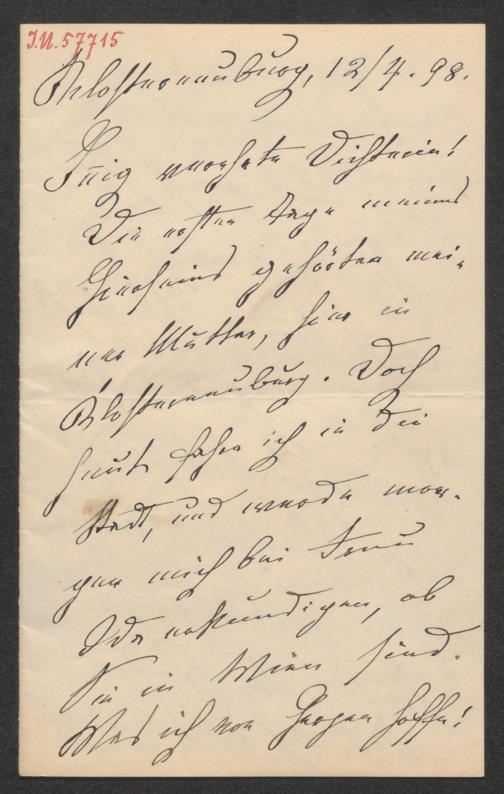 J.N. 57715
Klosterneuburg, 12/4. 98.
Innig verehrte Dichterin!
Die ersten Tage meines
Hierseins gehörten mei-
ner Mutter, hier in
Klosterneuburg. Doch
heute fahre ich in die
Stadt, und werde mor-
gen mich bei Frau
Ida erkundigen, ob
Sie in Wien sind.
Was ich von Herzen hoffe!